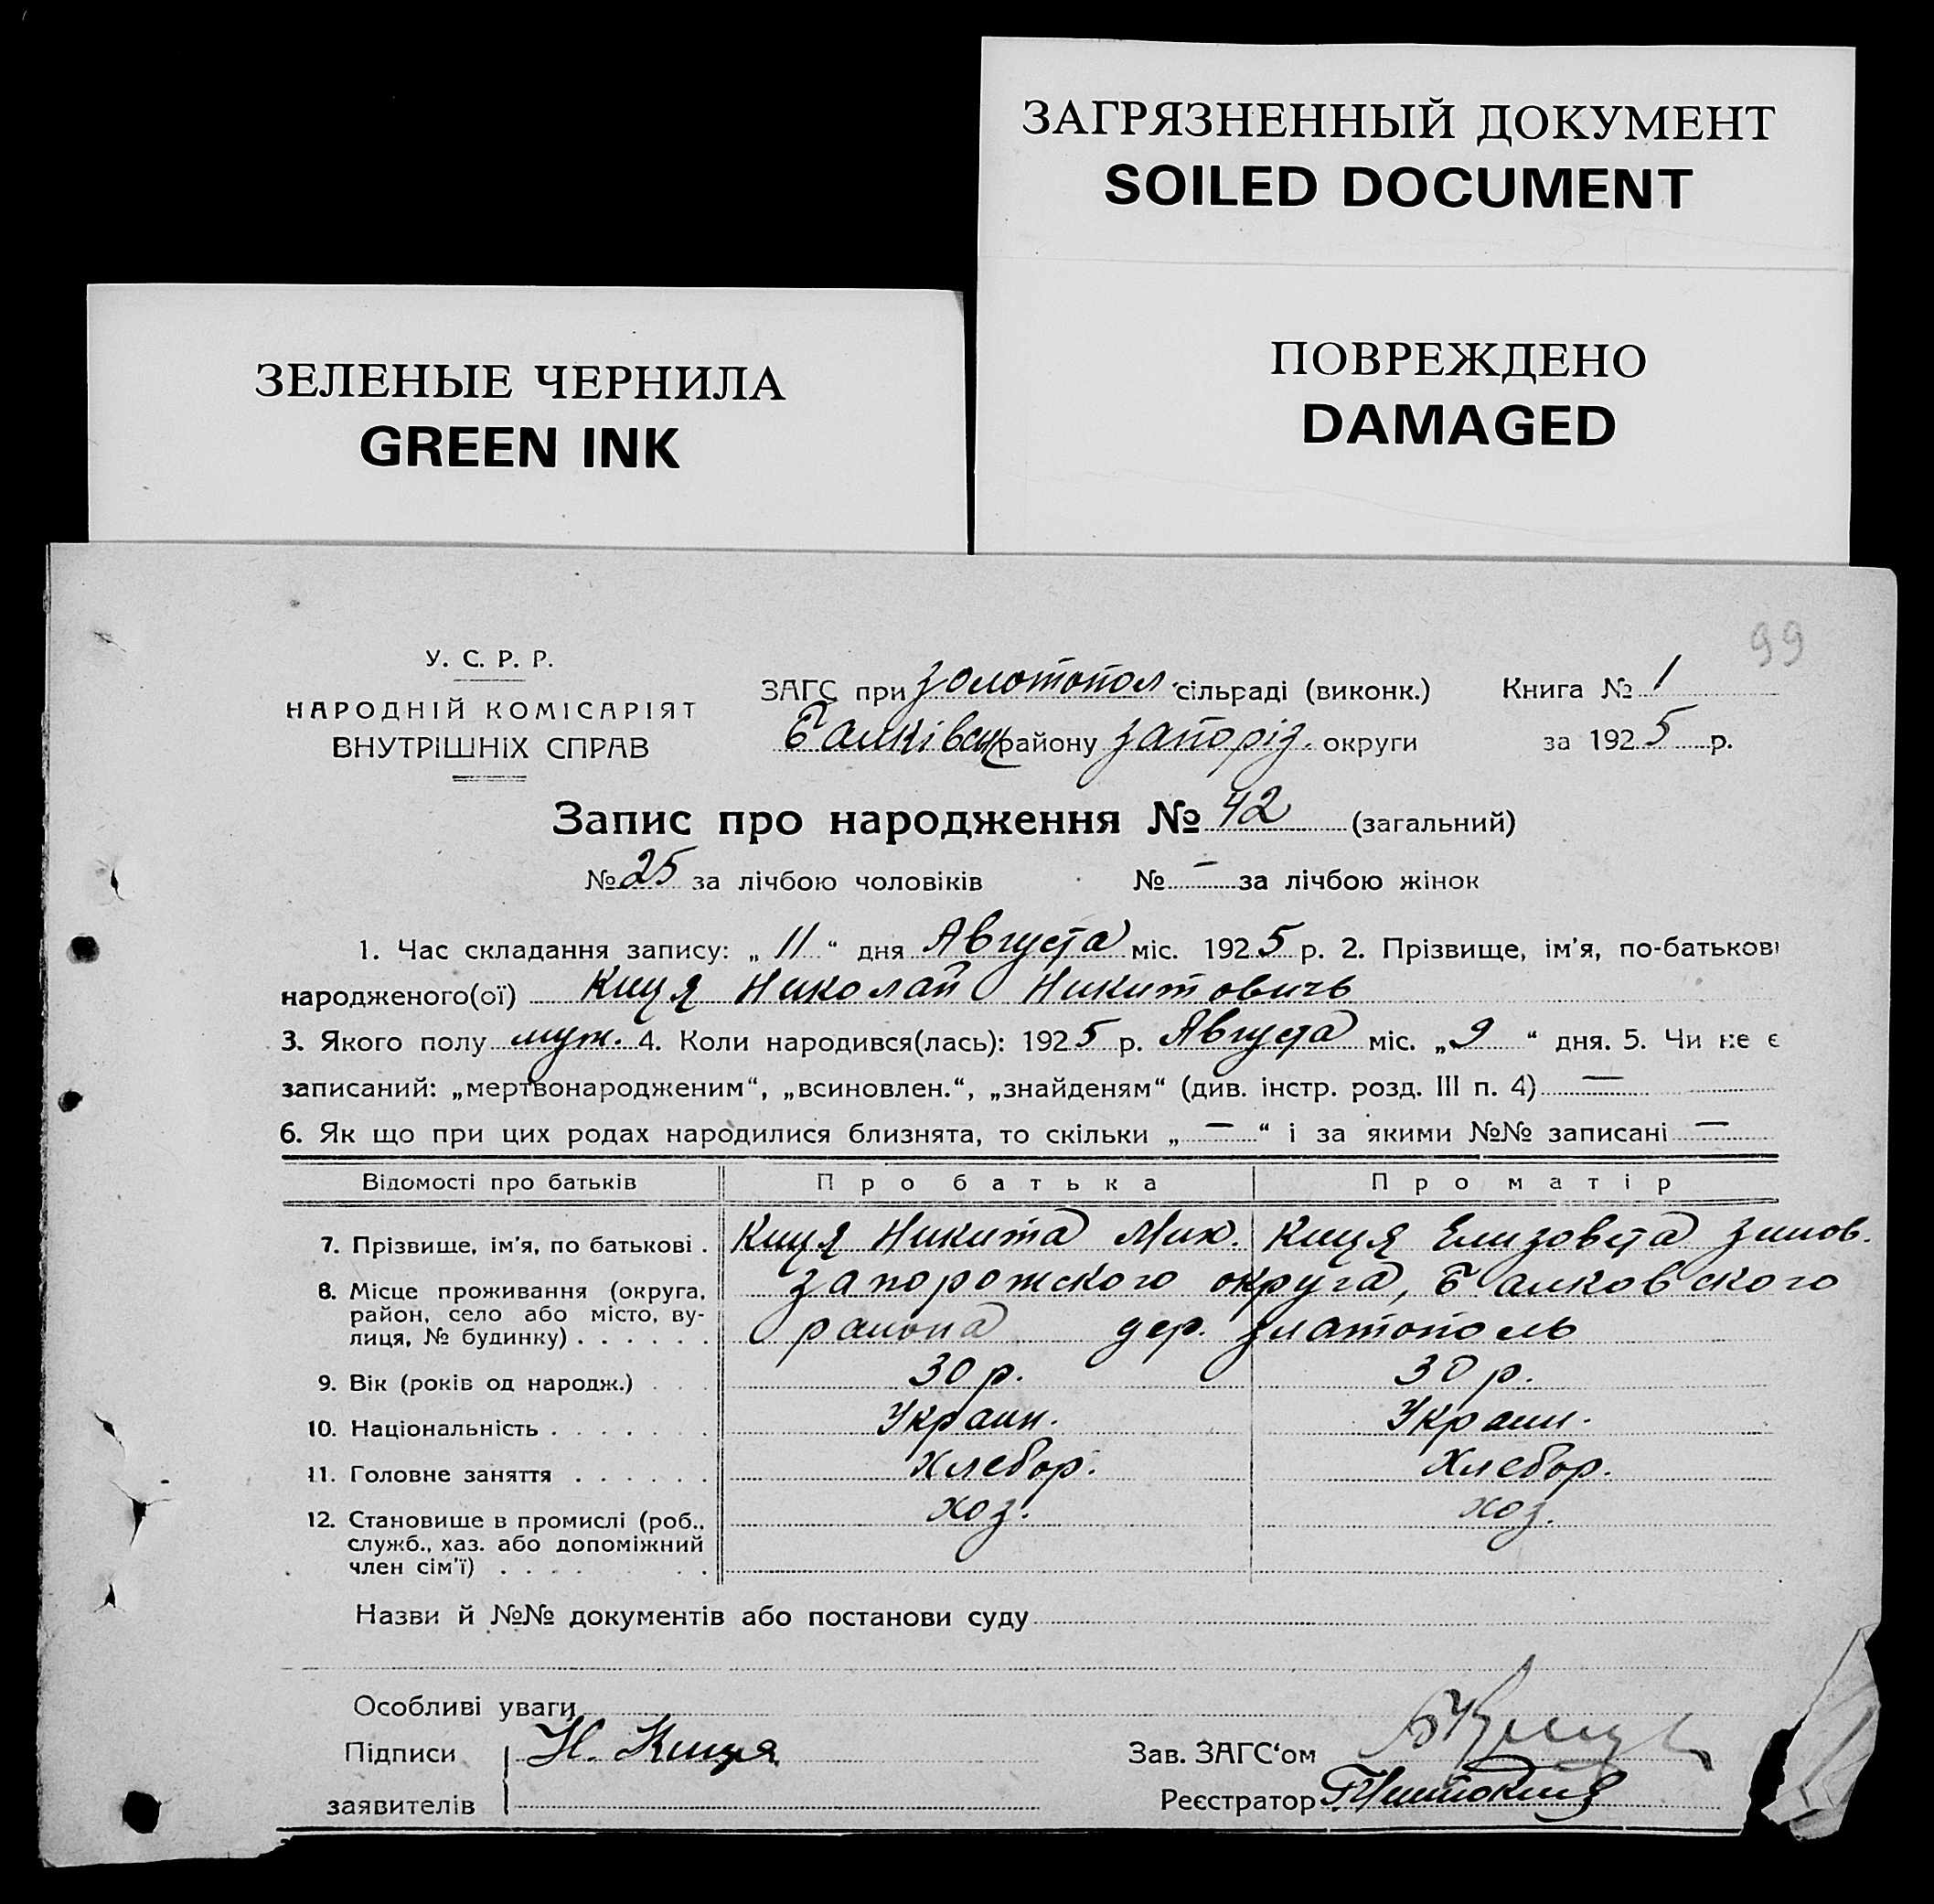 ЗАГРЯЗНЕННЫЙ ДОКУМЕНТ
SOILED DOCUMENT
ПОВРЕЖДЕНО
DAMAGED
ЗЕЛЕНЫЕ ЧЕРНИЛА
GREEN INK
99
У. С. Р. Р.
НАРОДНІЙ КОМІСАРІЯТ
ВНУТРІШНІХ СПРАВ
ЗАГС при Золотопол. сільраді (виконк.)
Балківськ району Запоріз. округи
Книга № 1
за 1925 р.
Запис про народження № 42 (загальний)
№ 25 за лічбою чоловіків № — за лічбою жінок
1. Час складання запису: „ 11 “ дня Августа міс. 1925 р. 2. Прізвище, ім'я, по-батькові
народженого(ої) Киця Николай Никитовичь
3. Якого полу муж. 4. Коли народився(лась): 1925 р. Августа міс. „ 9 “ дня. 5. Чи не є
записаний: „мертвонародженим“, „всиновлен.“, „знайденям“ (див. інстр. розд. III п. 4) —
6. Як що при цих родах народилися близнята, то скільки „ — “ і за якими №№ записані —
Відомості про батьків Про батька Про матір
7. Прізвище, ім'я, по батькові . Киця Никита Мих. Киця Елизовета Зинов.
8. Місце проживання (округа, Запорожского округа, Балковского
район, село або місто, ву-
лиця, № будинку) . . . . . . района дер. Златополь
9. Вік (років од народж.) . . . 30 р. 30 р.
10. Національність . . . . . . . Украин. Украин.
11. Головне заняття . . . . . . Хлебор. Хлебор.
12. Становище в промислі (роб., хоз. хоз.
служб., хаз. або допоміжний
член сім'ї) . . . . . .
Назви й №№ документів або постанови суду
Особливі уваги
Підписи Н. Киця Зав. ЗАГС‘ом
заявителів Реєстратор